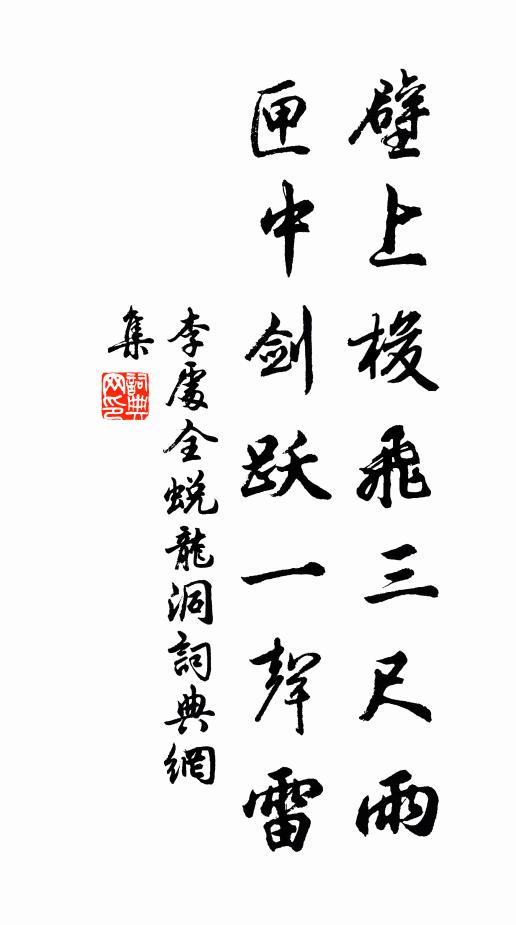 壁上梭飛三尺雨
匣中剑跃一聲雷
李處全蜕龍洞詞典網
集
詞典
网印